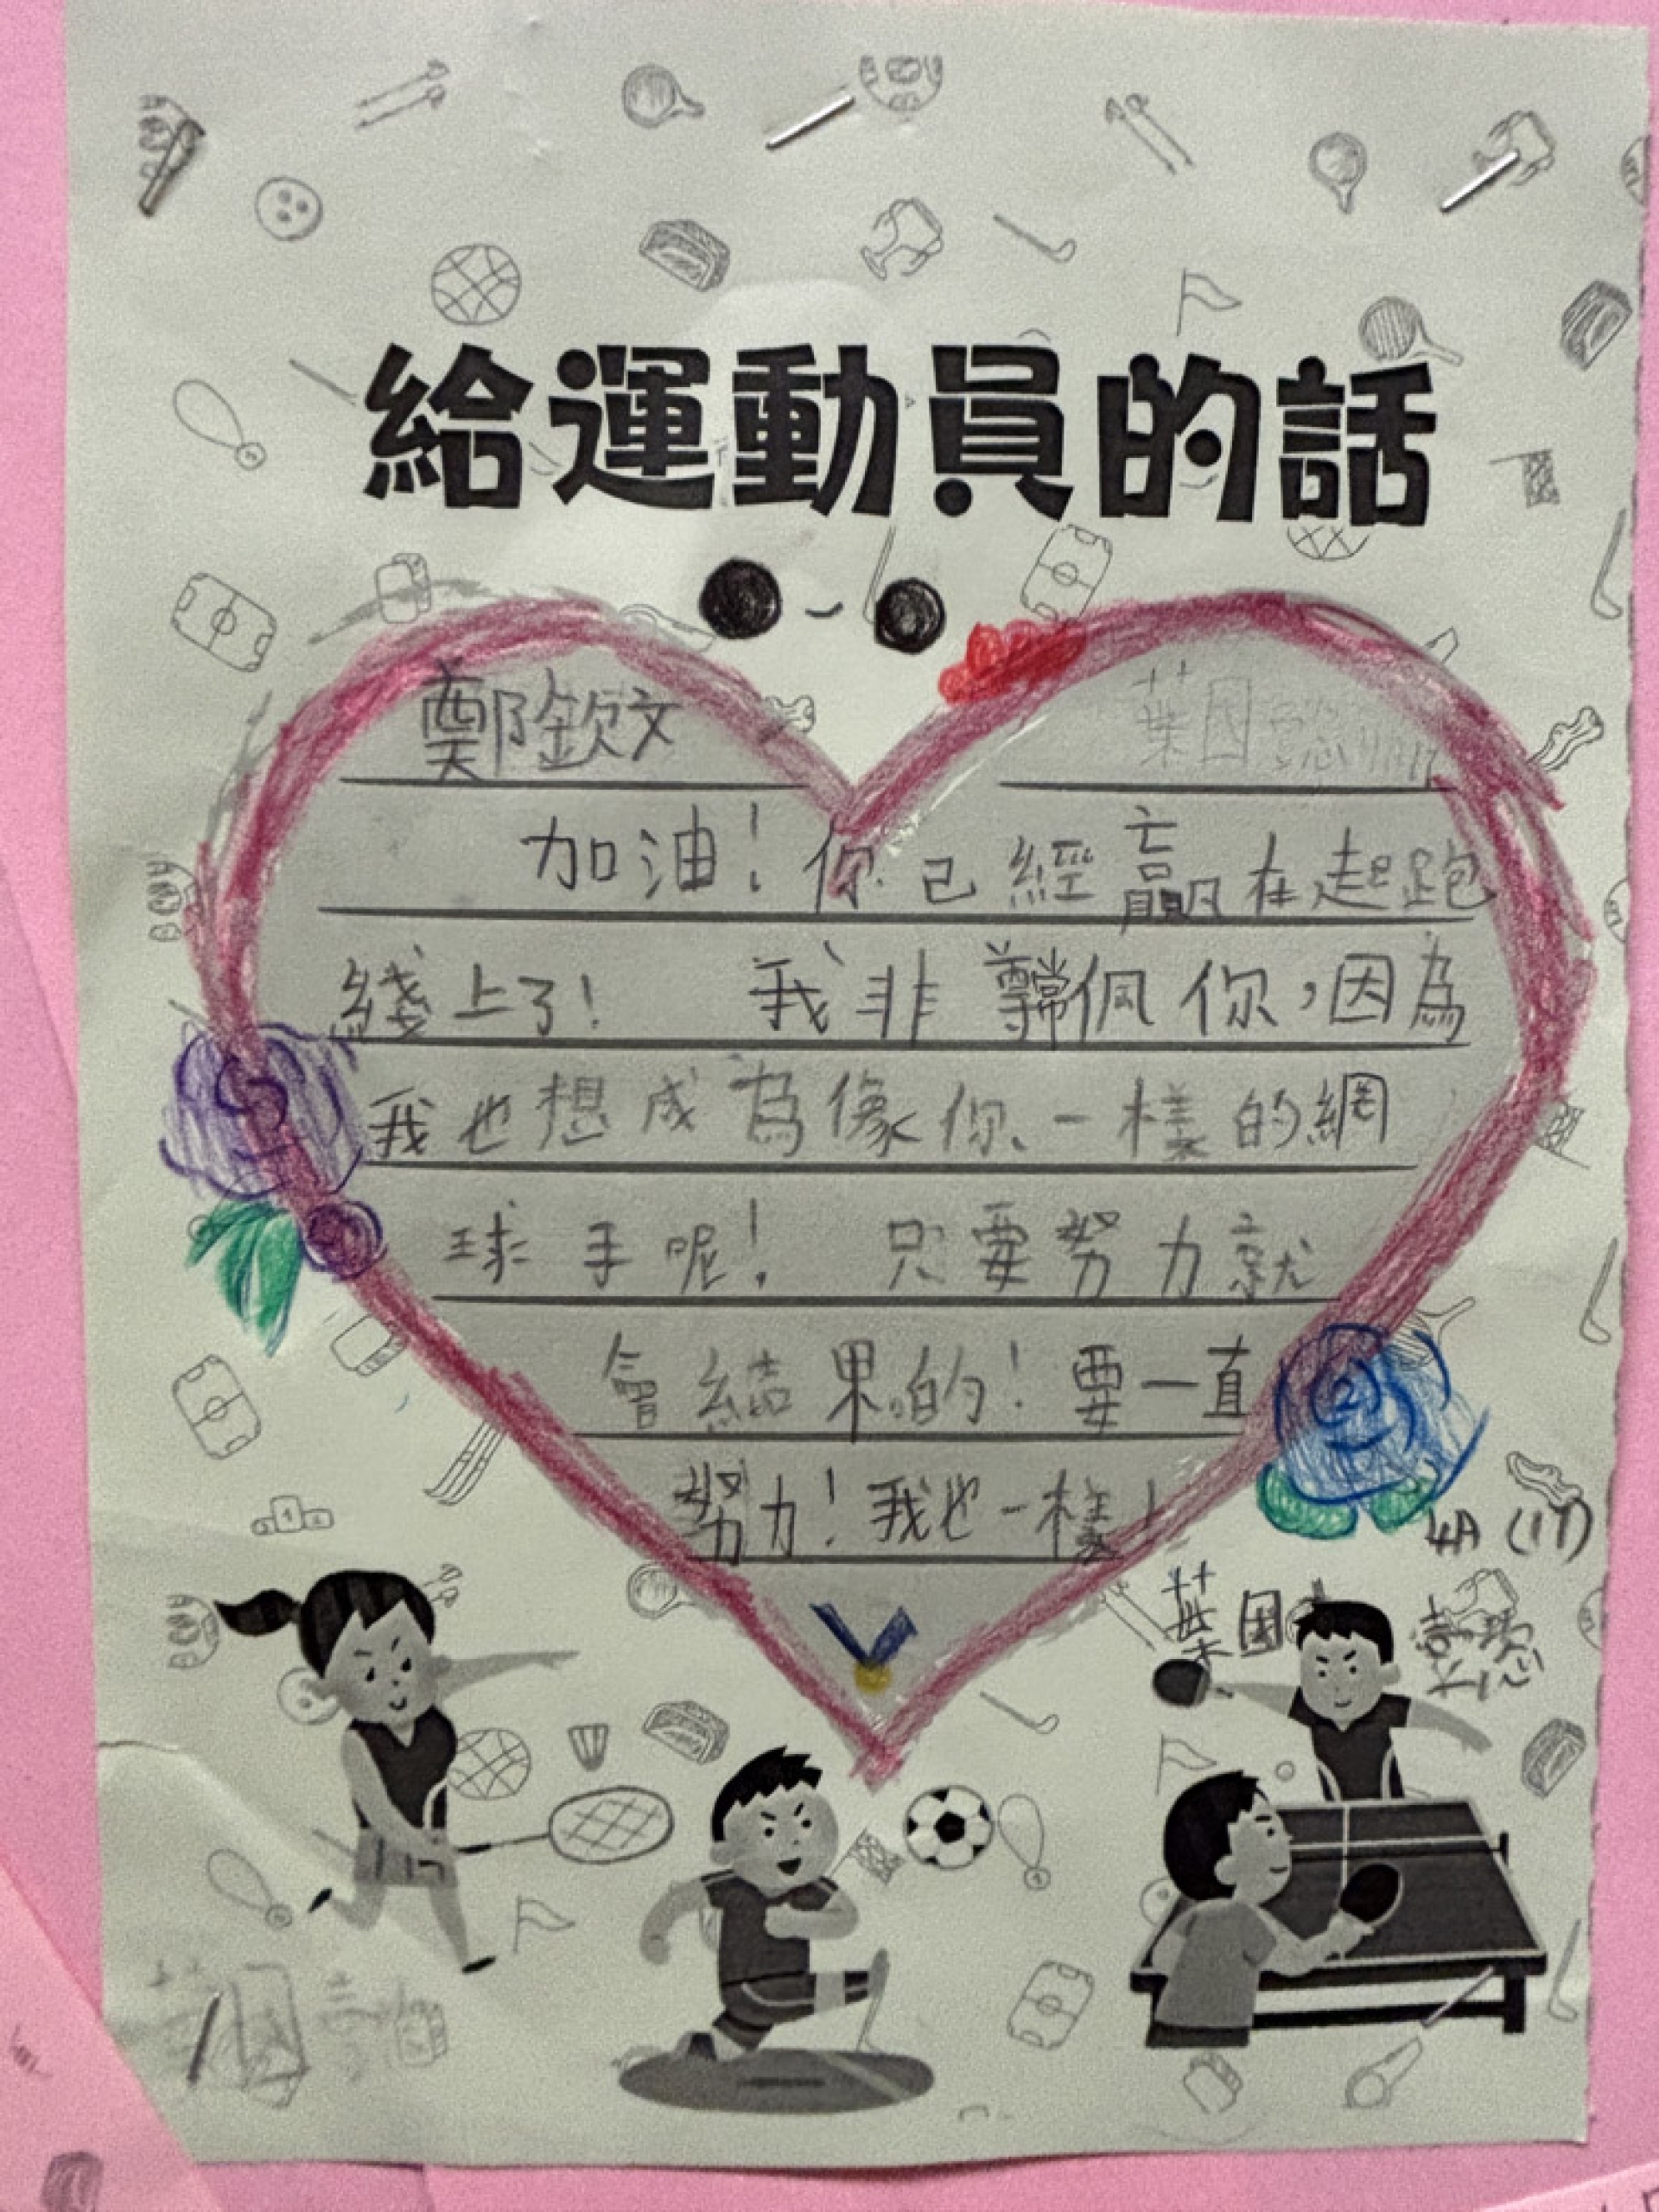 給運動員的話
鄭欽文
葉國
加油！你已經贏在起跑
綫上了！ 我非常佩你，因為
我也想成為像你一樣的網
球手呢！ 只要努力就
會結果的！要一直
努力！我也一樣！
4A (17)
葉國